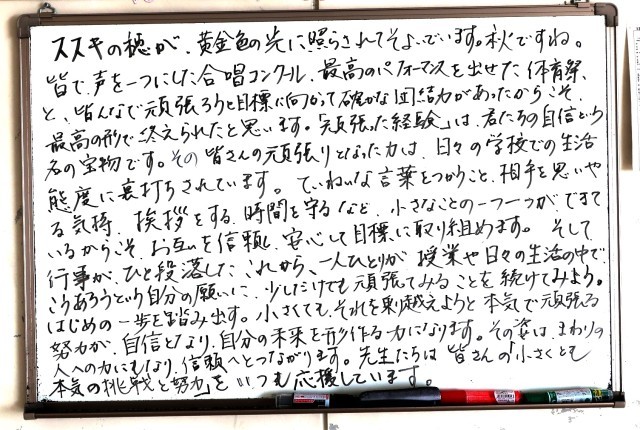 ススキの穂が、黄金色の光に照らされてそよいでいます。秋ですね。
皆で声を一つにした合唱コンクール、最高のパフォーマンスを出せた体育祭、
と、皆んなで頑張ろうと目標に向かって確かな団結力があったからこそ、
最高の形で終えられたと思います。「頑張った経験」は、君たちの自信という
名の宝物です。その皆さんの頑張りとなった力は、日々の学校での生活
態度に裏打ちされています。ていねいな言葉をつかうこと、相手を思いや
る気持、挨拶をする、時間を守るなど、小さなことの一つ一つができて
いるからこそ、お互いを信頼し安心して目標に取り組めます。そして
行事が、ひと段落した、これから、一人ひとりが授業や日々の生活の中で、
こうあろうという自分の願いに、少しだけでも頑張てみることを続けてみよう。
はじめの一歩を踏み出す。小さくても、それを乗り越えようと本気で頑張る
努力が、自信となり、自分の未来を形作る力になります。その姿は、まわりの
人への力にもなり、信頼へとつながります。先生たちは皆さんの「小さくとも
本気の挑戦と努力」をいつも応援しています。